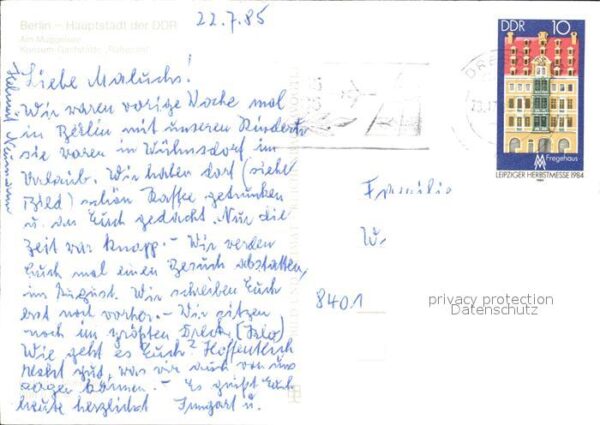 22.7.85
Berlin – Hauptstadt der DDR
Am Müggelsee
Konsum-Gaststätte „Rübezahl"
Liebe Maluchs!
Wir waren vorige Woche mal
in Berlin mit unseren Kindern
sie waren in Wünsdorf im
Urlaub. Wir haben dort (siehe
Bild) schön Kaffee getrunken
u. an Euch gedacht. Nur die
Zeit war knapp. – Wir werden
Euch mal einen Besuch abstatten,
im August. Wir schreiben Euch
erst noch vorher. – Wir sitzen
noch im größten Dreck,
Wie geht es Euch? Hoffentlich
recht gut, was wir auch von uns
sagen können. – Es grüßt Euch
heute herzlichst Irmgart u.
Helmut Neumann
DDR 10
Fregehaus
LEIPZIGER HERBSTMESSE 1984
Familie
W.
8401
privacy protection
Datenschutz